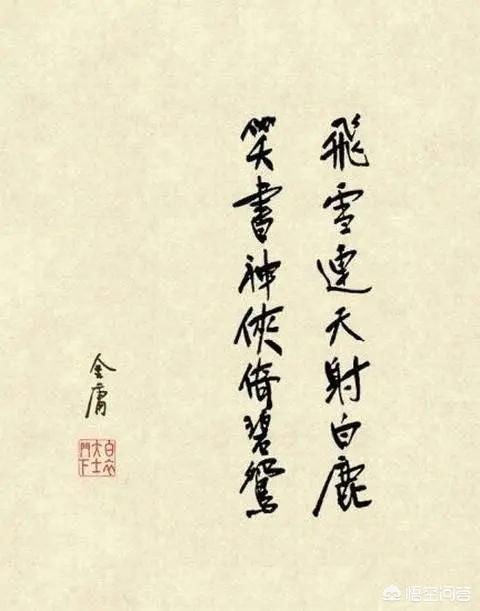 飛雪連天射白鹿
笑書神俠倚碧鴛
金庸
白衣大士門下
悟空问答